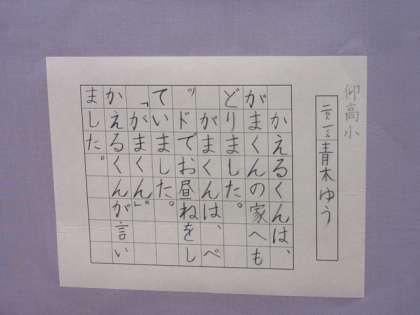 仰高小
二、三 青木ゆう
かえるくんは、
がまくんの家へも
どりました。
がまくんは、ベ
ッドでお昼ねをし
ていました。
「がまくん」。
かえるくんが言い
ました。